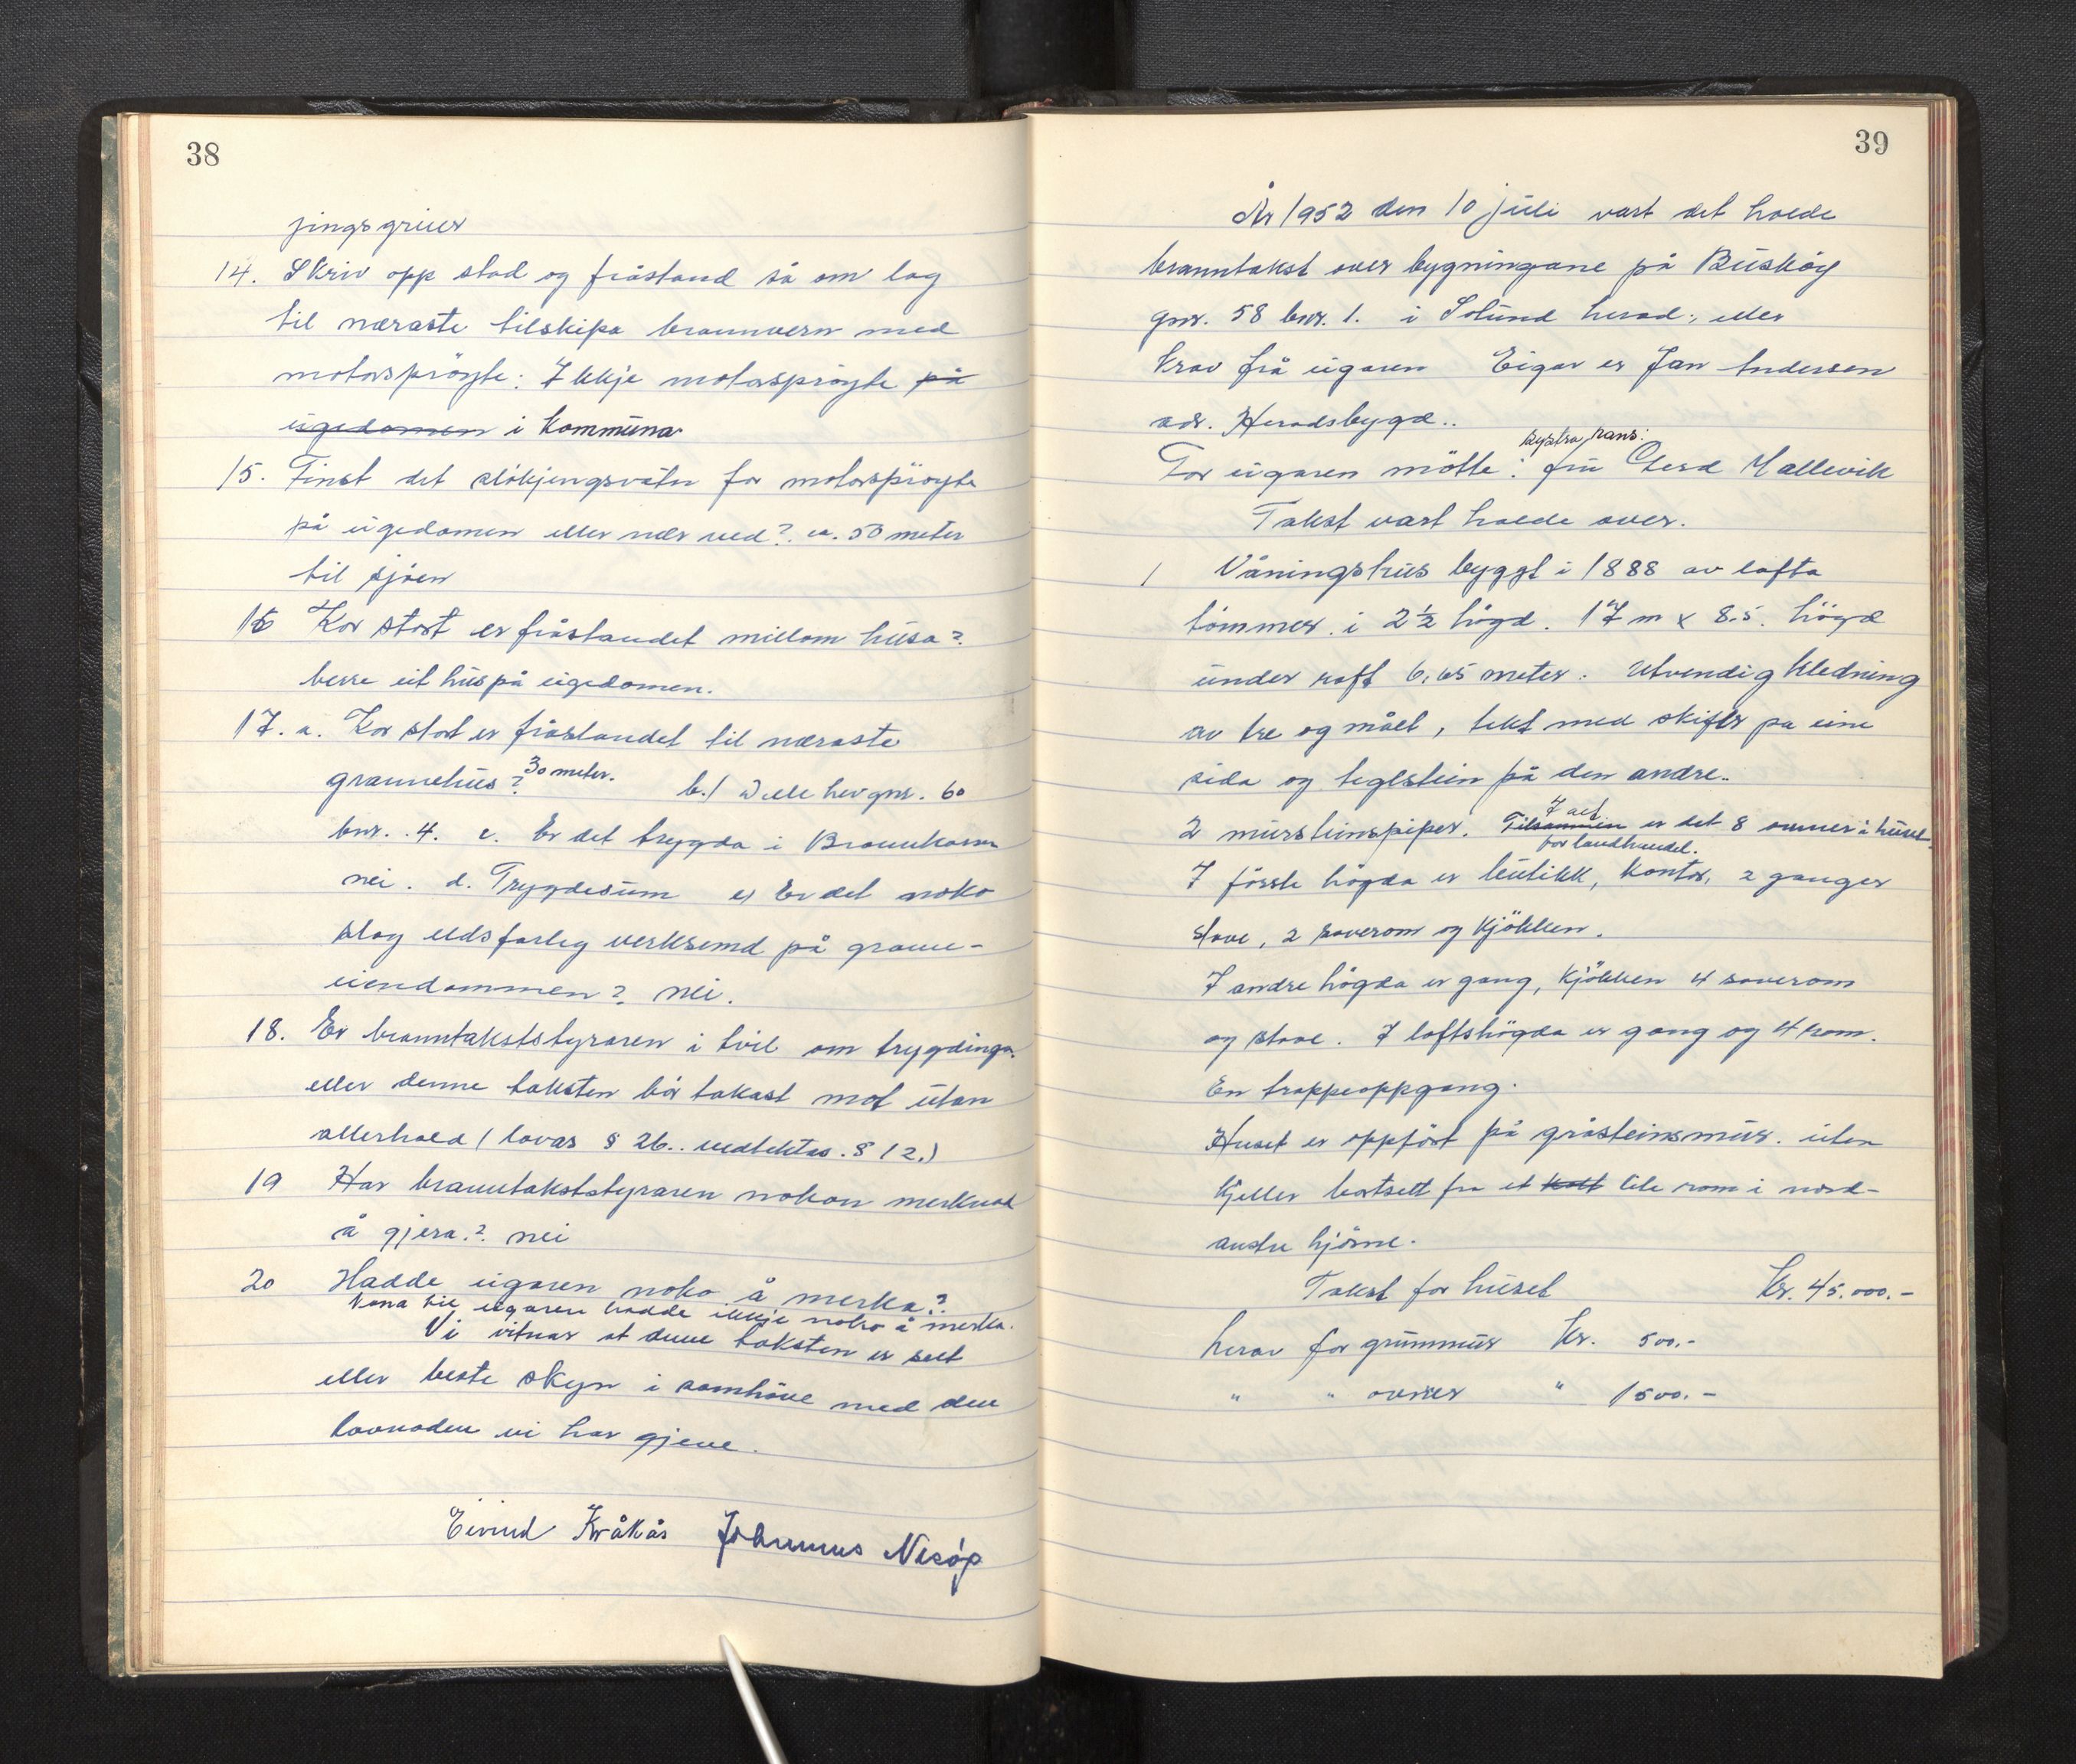 38
jingsgreier
14. Skriv opp stad og fråstand så om lag
til næraste tilskipa brannvern med
motorspröyte: Ikkje motorspröyte på
eigedomen i Kommuna
15. Finst det slökjingsvatn for motorspröyte
på eigedomen eller nær ved? ca. 50 meter
til sjöen
16 Kor stort er fråstandet millom husa?
berre eit hus på eigedomen.
17. a. Kor stort er fråstandet til næraste
grannehus? 30 meter. b.) Dette hev gnr. 60
bnr. 4. c. Er det trygda i Brannkassa
nei. d. Trygdesum e) Er det noko
slag eldsfarleg verksemd på grann-
eiendommen? nei.
18. Er branntakststyraren i tvil om trygdinga
eller denne taksten bör takast mot utan
atterhald (lovas § 26.. vedtektas. § 12.)
19 Har branntakststyraren nokon merknad
å gjera.? nei
20 Hadde eigaren noko å merka?
Kona til eigaren hadde ikkje noko å merka.
Vi vitnar at denne taksten er sett
etter beste skyn i samhöve med den
lovnaden vi har gjeve.
Eivind Kråkås Johannes Nesöy
39
År 1952 den 10 juli vart det halde
branntakst over bygningane på Busköy
gnr. 58 bnr. 1. i Solund herad, etter
krav frå eigaren Eigar er Jan Andersen
adr. Heradsbygd..
systra hans:
For eigaren mötte: fru Gerd Hallevik
Takst vart halde over.
1 Våningshus byggt i 1888 av lafta
tömmer. i 2½ högd. 17 m x 8.5. högd
under raft 6,65 meter. Utvendig kledning
av tre og målt, tekt med skifer pa eine
sida og teglstein på den andre.
I alt
2 mursteinspiper. Tilsammen er det 8 omner i huset.
for landhandel.
I förste högda er butikk, kontor, 2 ganger
stove, 2 soverom og kjökken.
I andre högda er gang, kjökken 4 soverom
og stove. I loftshögda er gang og 4 rom.
En trappeoppgang.
Huset er oppfört på gråsteinsmur. uten
kjeller bortsett fra et lite rom i nord-
austre hjörne.
Takst for huset Kr. 45.000.-
herav for grunnmur Kr. 500.-
" " ovner " 1500.-